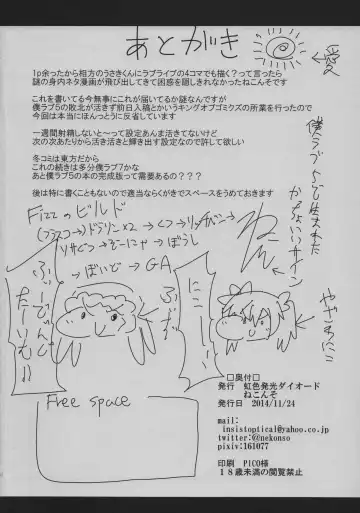 あとがき
1p余ったから相方のうさきくんにラブライブの4コマでも描く?って言ったら
謎の身内ネタ漫画が飛び出してきて困惑を隠しきれなかったねこんそです
これを書いてる今無事にこれが届いてるか謎なんですが
僕ラブ5の敗北が活きず前日入稿とかいうキングオブゴミクズの所業を行ったので
今回は本当にほんっとうに反省しています
一週間射精しないと~って設定あんま活きてないけど
次の次あたりから活き活きと輝き出す設定なので許して欲しい
冬コミは東方だから
これの続きは多分僕ラブ7かな
あと僕ラブ5の本の完成版って需要あるの???
後は特に書くこともないので適当ならくがきでスペースをうめておきます
←愛
僕ラブ5で生まれた
かわいいサイン
ねこん
Fizzのビルド
(フラスコ→)ドラリン×2→くつ→リッチベイン→
ソサぐつ→ぞーにゃ→ぼうし
→ぼいど→GA
ふぃーどんど
たーいむ!!
ふぃず
にこー!
やざわにこ
Free space
□奥付□
発行 虹色発光ダイオード
ねこんそ
発行日 2014/11/24
mail:
insistoptical@yahoo.co.jp
twitter:@nekonso
pixiv:161077
印刷 PICO様
18歳未満の閲覧禁止